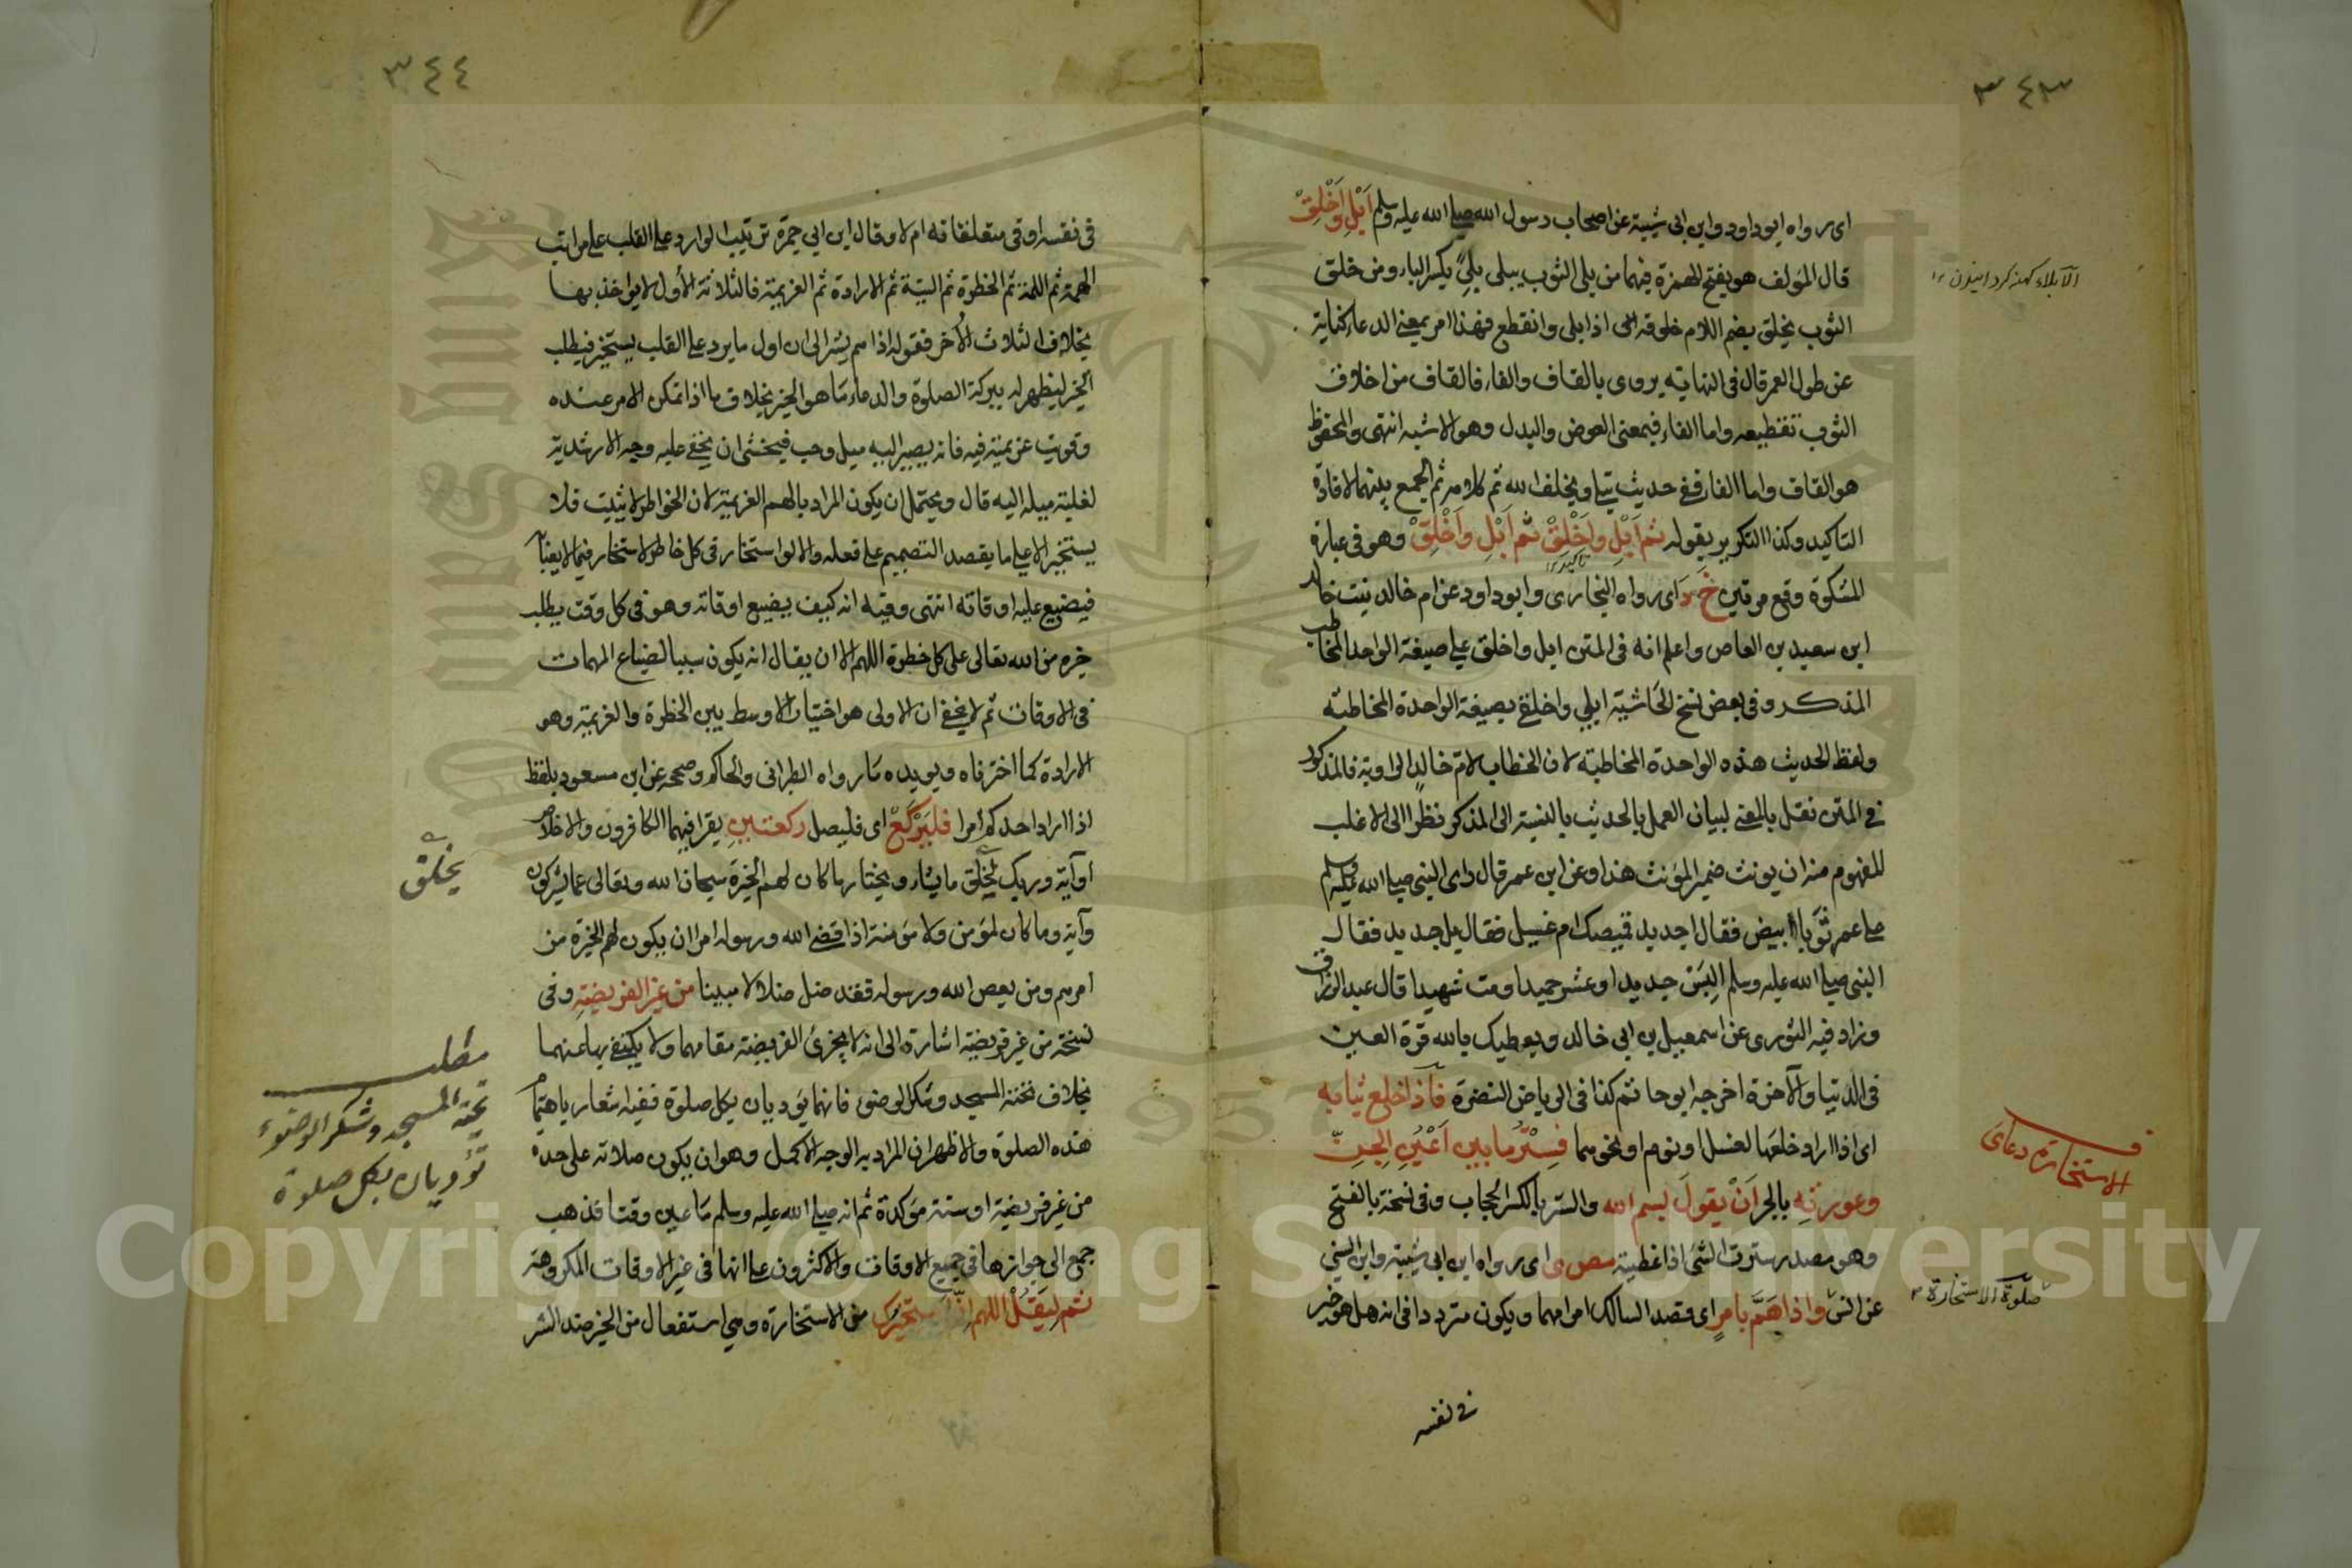 ٣٤٣
اى رواه ابوداود وابن ابى شيبة عن اصحاب رسول الله صلى الله عليه وسلم اَبْلِ وَاَخْلِقْ
قال المؤلف هو بفتح الهمزة فيهما من بلى الثوب يبلى بِلىً بكسر الباء ومن خلق
الثوب يخلق بضم اللام خلوقة اى اذا بلى وانقطع فهذا امر بمعنى الدعاء كناية
عن طول العمر قال فى النهاية يروى بالقاف والفاء فالقاف من اخلاق
الثوب تقطيعه واما الفاء فبمعنى العوض والبدل وهو الاشبه انتهى والمحفوظ
هو القاف واما الفاء ففى حديث تبلى ويخلف الله تم كلامه ثم الجمع بينهما لافادة
التاكيد وكذا التكرير بقوله ثم اَبْلِ واَخْلِقْ ثم اَبْلِ واَخْلِقْ وهو فى عبارة
تاكيد ١٢
المشكوة وقع مرتين خ د اى رواه البخارى وابوداود عن ام خالد بنت خالد
ابن سعيد بن العاص واعلم انه فى المتن ابل واخلق على صيغة الواحد المخاطب
المذكر وفى بعض نسخ الحاشية ابلي واخلقي بصيغة الواحدة المخاطبة
ولفظ الحديث هذه الواحدة المخاطبة لان الخطاب لام خالد الراوية فالمذكور
فى المتن نقل بالمعنى لبيان العمل بالحديث بالنسبة الى المذكر نظرا الى الاغلب
للمفهوم منه ان يونث ضمير المؤنث هذا وعن ابن عمر قال راى النبى صلى الله عليه وسلم
على عمر ثَوبا ابيض فقال اجديد قميصك ام غسيل فقال بل جديد فقال
النبى صلى الله عليه وسلم اِلبَسْ جديدا وعش حميدا ومت شهيدا قال عبد الرزاق
وزاد فيه الثورى عن اسمعيل بن ابى خالد ويعطيك بالله قرة العين
فى الدنيا والآخرة اخرجه ابوحاتم كذا فى الرياض النضرة فاذا خلع ثيابه
اى اذا اراد خلعها لغسل او نوم او نحوهما فسِتْرُ ما بين اَعْيُنِ الجنّ
وعورتِه بالجر اَنْ يقولَ بسم الله والستر بالكسر الحجاب وفى نسخة بالفتح
وهو مصدر سترت الشئ اذا غطيته مص ى اى رواه ابن ابى شيبة وابن السنى
عن انس واذا هَمَّ بامرٍ اى قصد السالك امرا مهما ويكون مترددا فى انه هل هو خير
فى نفسه
الآبلاء كهنه كردانيدن ١٢
الاستخارة دعاى
صلوة الاستخارة ٢
٣٤٤
فى نفسه او فى متعلقاته ام لا وقال ابن ابى جمرة ترتيب الوارد على القلب على مراتب
الهمة ثم اللمة ثم الخطرة ثم النية ثم الارادة ثم العزيمة فالثلاثة الأول لا يواخذ بها
بخلاف الثلاث الأُخر فقوله اذا هم يشير الى ان اول ما يرد على القلب يستخير فيطلب
الخير ليظهر له ببركة الصلوة والدعاء مَا هو الخير بخلاف ما اذا تمكن الامر عنده
وقويت عزيمته فيه فانه يصير اليه ميل وحب فيخشى ان يخفى عليه وجه الارشدية
لغلبة ميله اليه قال ويحتمل ان يكون المراد بالهم العزيمة لان الخواطر لا يثبت فلا
يستخير الا على ما يقصد التصميم على فعله والا لو استخار فى كل خاطر لاستخار فيما لا يعبأ
فيضيع عليه اوقاته انتهى وفيه انه كيف يضيع اوقاته وهو فى كل وقت يطلب
خيره من الله تعالى على كل خطرة اللهم الا ان يقال انه يكون سببا لضياع المهمات
فى الاوقات ثم لا يخفى ان الاولى هو اختيار الاوسط بين الخطرة والعزيمة وهو
الارادة كما اخترناه ويويده مَا رواه الطبرانى والحاكم وصححه عن ابن مسعود بلفظ
اذا اراد احدكم أمرا فليَرْكَعْ اى فليصل ركعتينِ يقرا فيهما الكافرون والاخلاص
او آية وربك يَخلُق ما يشاء ويختار ما كان لهم الخِيَرة سبحان الله وتعالى عما يشركون
وآية وما كان لمؤمن ولا مؤمنة اذا قضى الله ورسوله امرا ان يكون لهم الخيرة من
امرهم ومن يعص الله ورسوله فقد ضل ضلالا مبينا من غير الفريضةِ وفى
نسخة من غير فريضة اشارة الى انه لا يجزئ الفريضة مقامهما ولا يكتفى بها عنهما
بخلاف تحية المسجد وشكر الوضوء فانهما يؤديان بكل صلوة ففيه اشعار باهتمام
هذه الصلوة والاظهر ان المراد به الوجه الاكمل وهو ان يكون صلاته على حدة
من غير فريضة او سنة مؤكدة ثم انه صلى الله عليه وسلم مَا عين وقتا فذهب
جمع الى جوازها فى جميع الاوقات والاكثرون على انها فى غير الاوقات المكروهة
ثم ليَقُلْ اللهم اِنّى استخيرك من الاستخارة وهى استفعال من الخير ضد الشر
يخلق
مطلب
تحية المسجد وشكر الوضوء
تؤديان بكل صلوة
Copyright © King Saud University
957